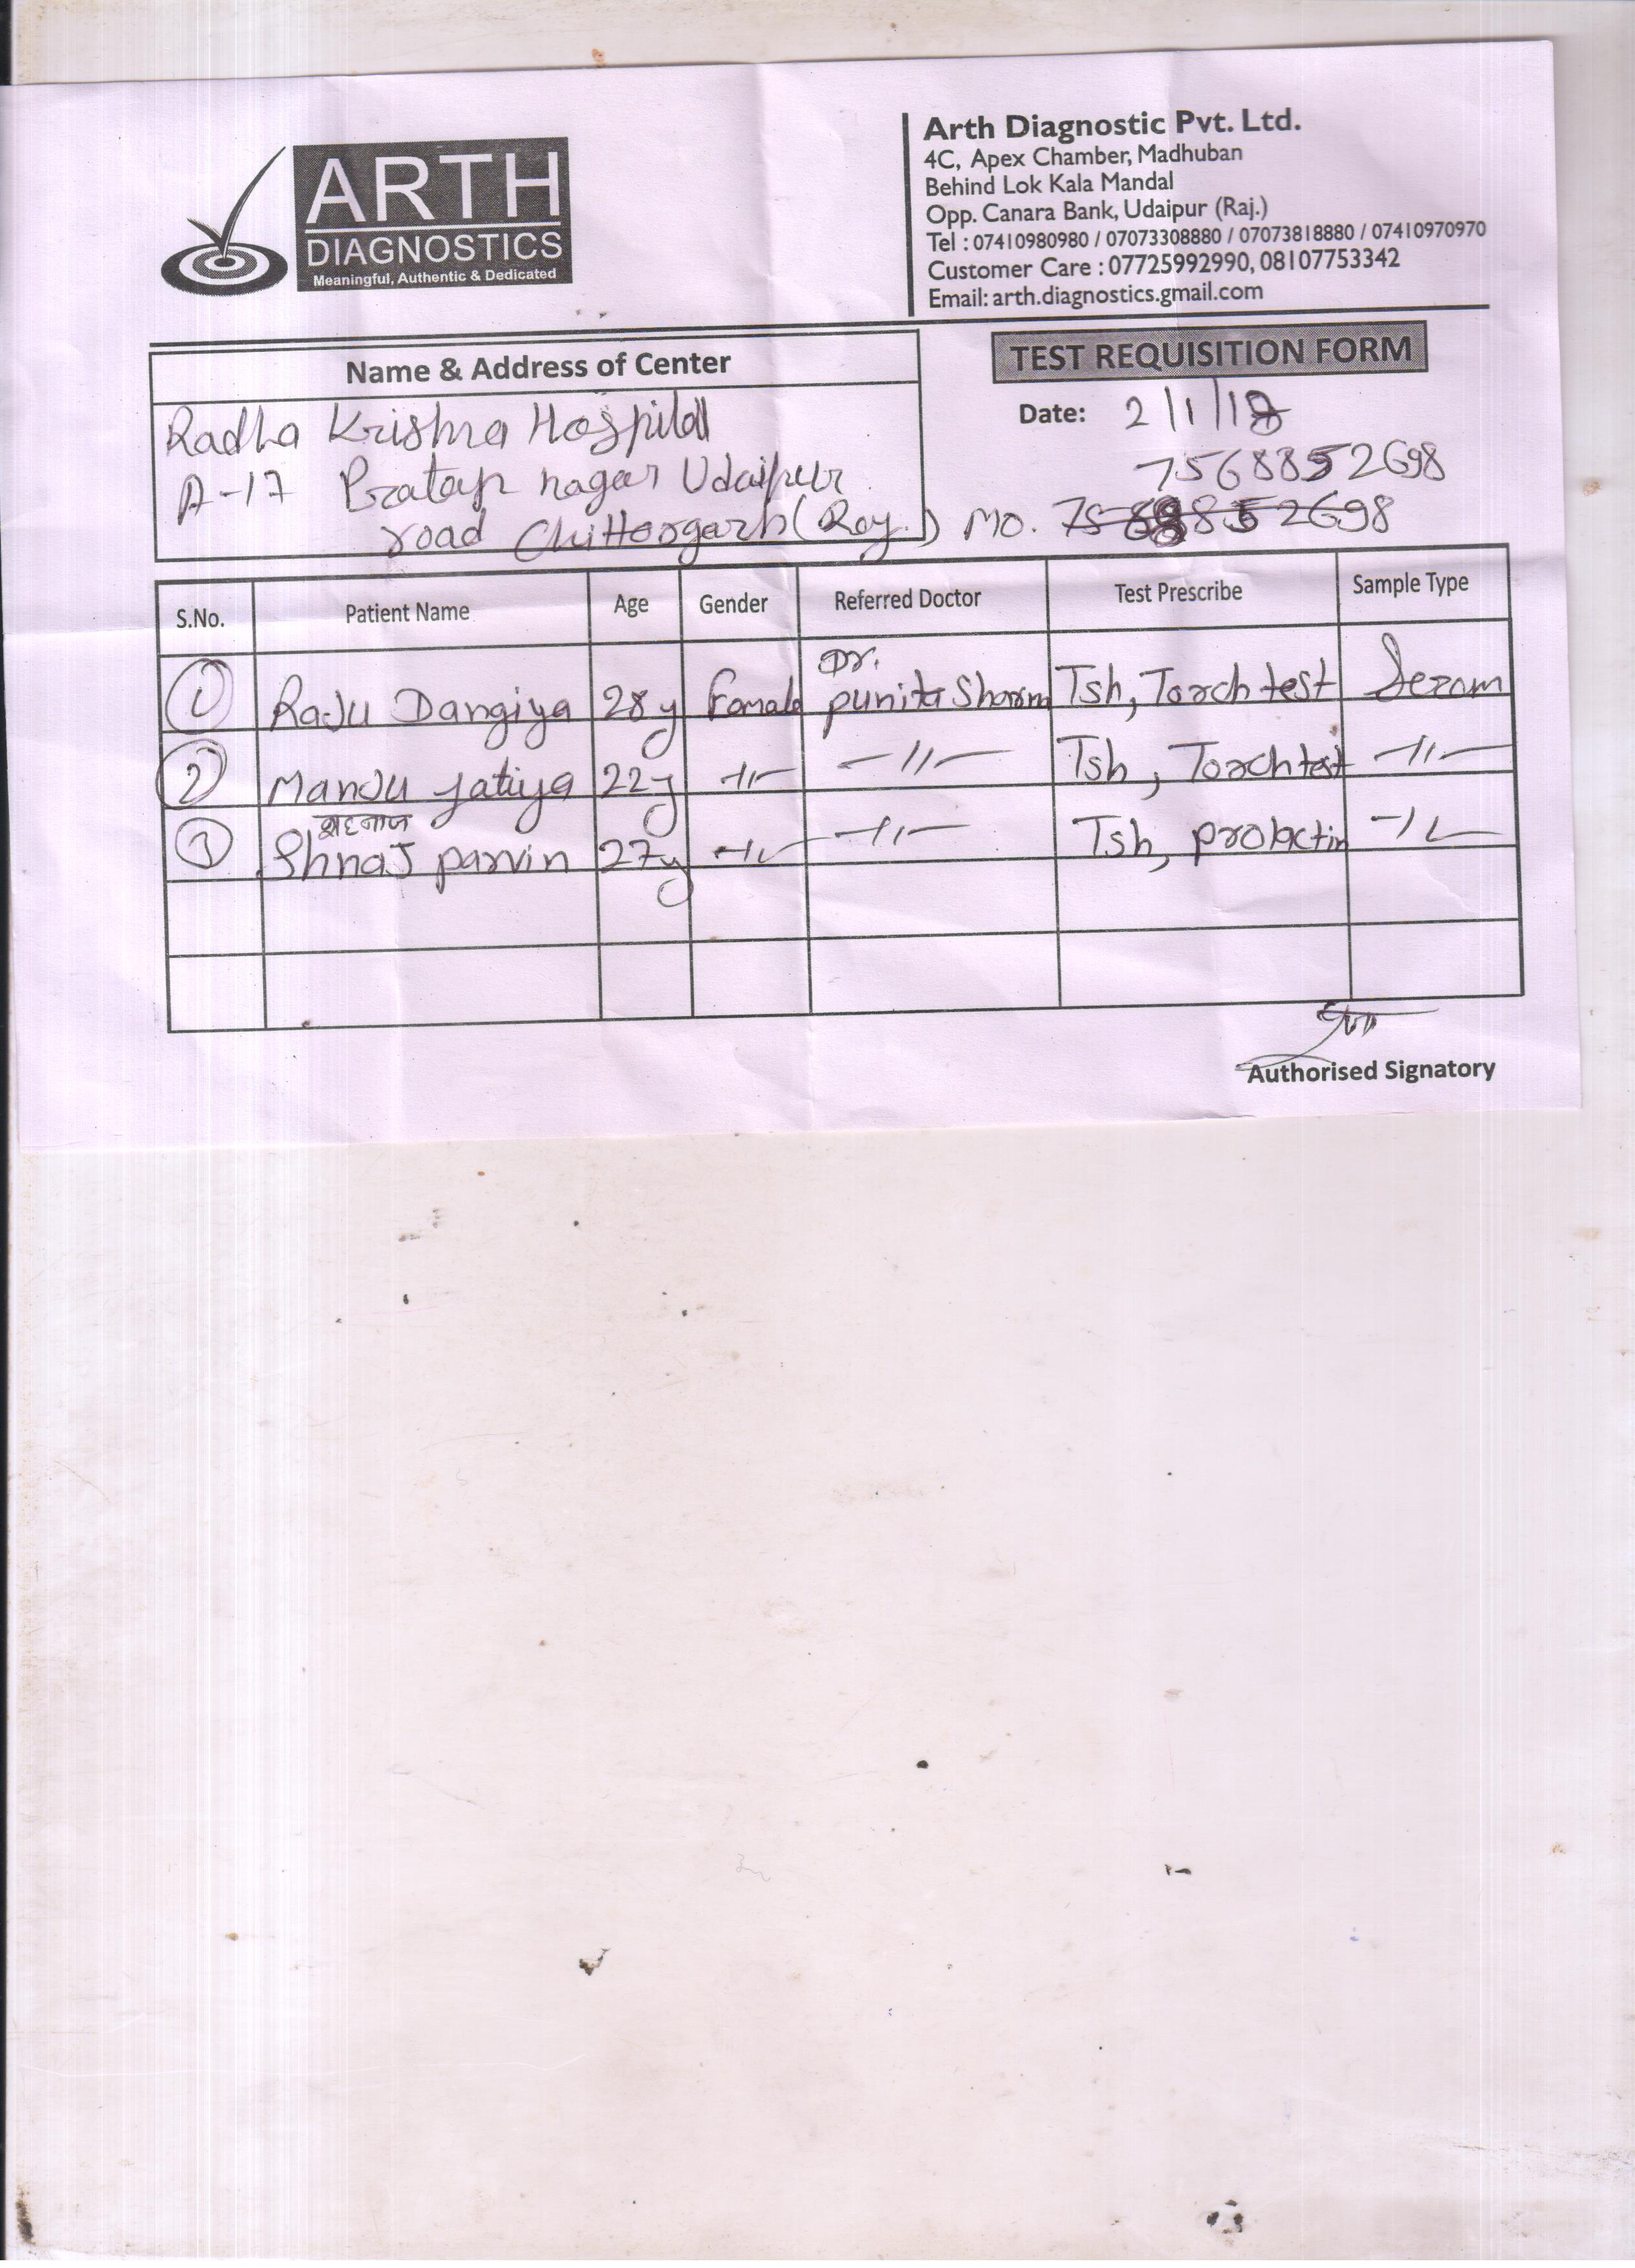 ARTH
DIAGNOSTICS
Meaningful, Authentic & Dedicated
Arth Diagnostic Pvt. Ltd.
4C, Apex Chamber, Madhuban
Behind Lok Kala Mandal
Opp. Canara Bank, Udaipur (Raj.)
Tel : 07410980980 / 07073308880 / 07073818880 / 07410970970
Customer Care : 07725992990, 08107753342
Email: arth.diagnostics.gmail.com
Name & Address of Center
Radha Krishna Hospital
A-17 Pratap nagar Udaipur
road Chittorgarh (Raj.)
TEST REQUISITION FORM
Date: 2/1/18
7568852698
Mo.
S.No. Patient Name Age Gender Referred Doctor Test Prescribe Sample Type
1 RaJu Dangiya 28y Female Dr. punita Sharm Tsh, Torch test Serom
2 ManJu Jatiya 22y -11- -11- Tsh, Torch test -11-
शहनाज
3 ShnaJ parvin 27y -11- -11- Tsh, prolactin -11-
Authorised Signatory